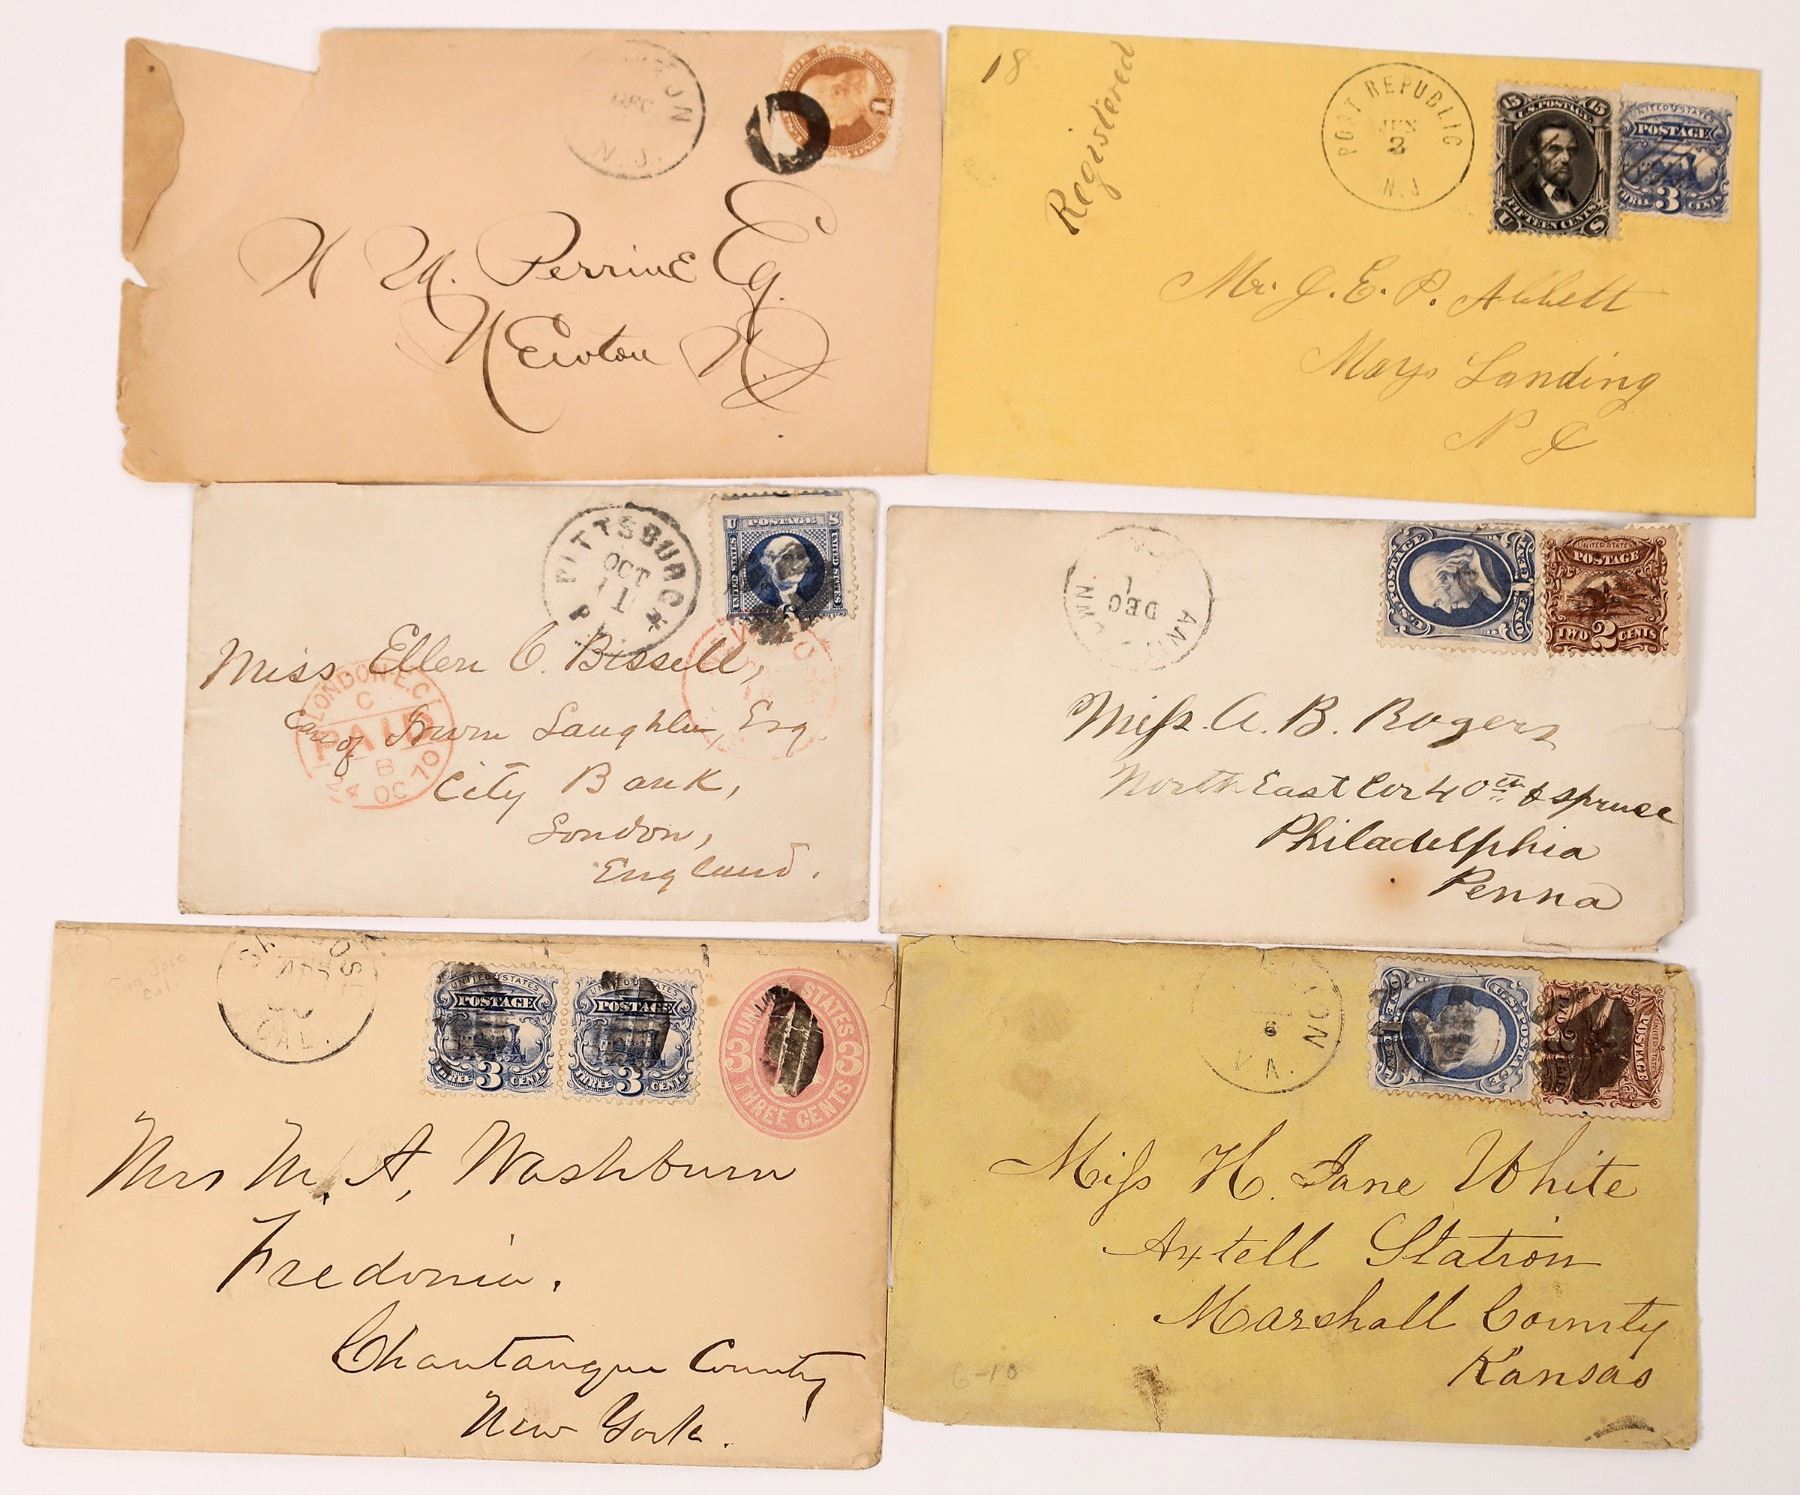 N.J.
Perrine Esq.
Newton N.J.
18
Registered
PORT REPUBLIC
2
N.J
15 U.S. POSTAGE 15
FIFTEEN CENTS
U S
UNITED STATES
POSTAGE
THREE 3 CENTS
Mr. J. E. P. Abbett
Mays Landing
N J
PITTSBURG
OCT
11
U POSTAGE S
UNITED STATES
UNITED STATES
Miss Ellen C. Bissell,
Care of Irwin Laughlin, Esq.
City Bank,
London,
England.
LONDON. E.C
C
PAID
B
24 OC 70
DEC
U.S. POSTAGE
ONE CENT
UNITED STATES
POSTAGE
TWO 2 CENTS
Miss A. B. Rogers
North East Cor 40th & Spruce
Philadelphia
Penna
San Jose
Cal.
CAL.
UNITED STATES
POSTAGE
THREE 3 CENTS
UNITED STATES
POSTAGE
THREE 3 CENTS
UNITED STATES
3 3
THREE CENTS
Mrs M. A. Washburn
Fredonia.
Chautauque County
New York.
6
VA.
U.S. POSTAGE
UNITED STATES
POSTAGE
TWO 2
Miss H. Jane White
Axtell Station
Marshall County
Kansas
6-10